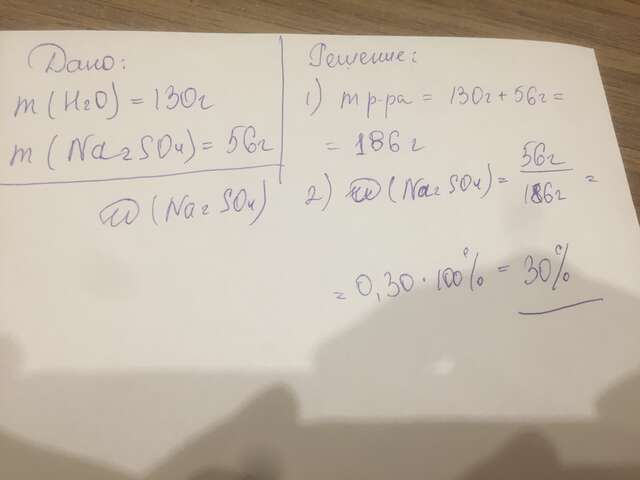 Дано:
m (H₂O) = 130г
m (Na₂SO₄) = 56г
ω (Na₂SO₄)
Решение:
1) m р-ра = 130г + 56г =
= 186г
2) ω (Na₂SO₄) = 56г / 186г =
= 0,30 · 100% = 30%